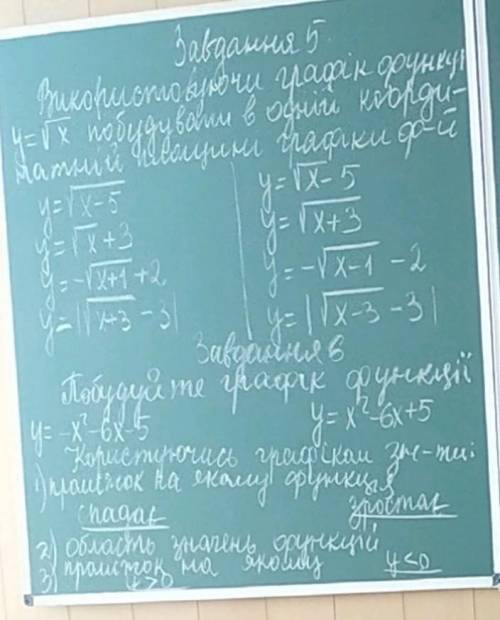 Завдання 5
Використовуючи графік функції
y=√x побудувати в одній коорди-
натній площині графіки ф-й
y=√(x-5) y=√x-5
y=√x+3 y=√(x+3)
y=-√(x+1)+2 y=-√(x-1)-2
y=|√(x+3)-3| y=|√(x-3)-3|
Завдання 6
Побудуйте графік функції
y=-x²-6x-5 y=x²-6x+5
Користуючись графіком зн-ти:
1) проміжок на якому функція
спадає зростає
2) область значень функції
3) проміжок на якому
y>0 y<0